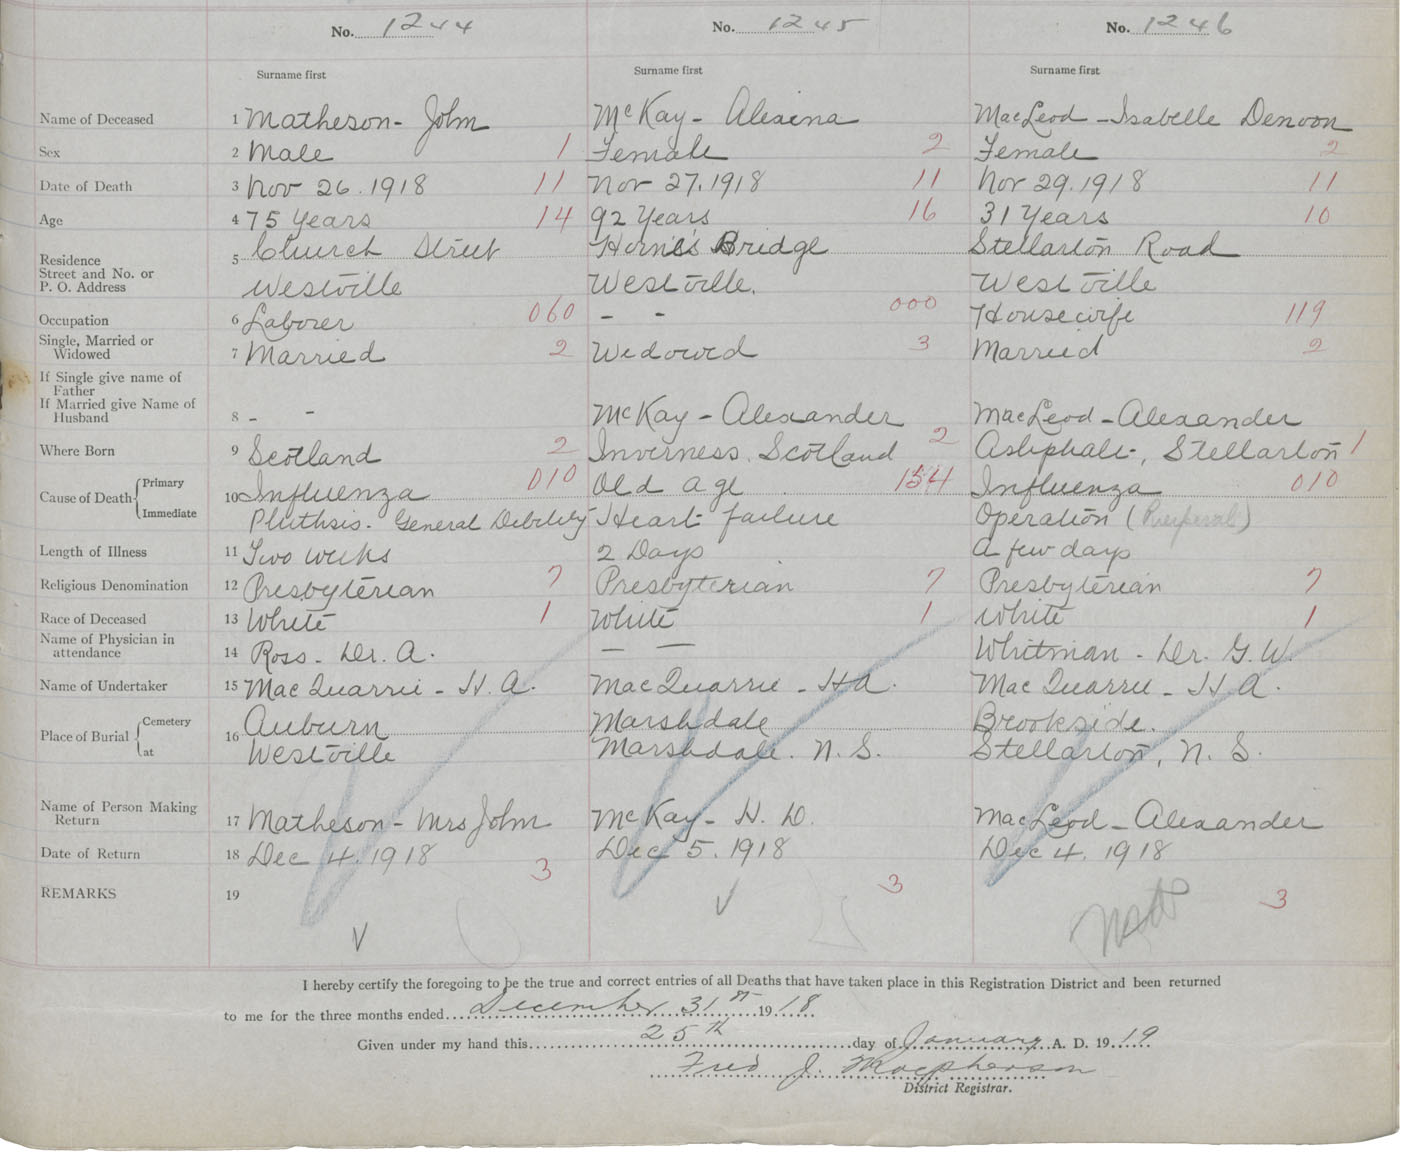 No. 1244 No. 1245 No. 1246
Surname first Surname first Surname first
Name of Deceased 1 Matheson - John McKay - Alexina MacLeod - Isabelle Denoon
Sex 2 Male 1 Female 2 Female 2
Date of Death 3 Nov 26. 1918 11 Nov 27. 1918 11 Nov 29. 1918 11
Age 4 75 Years 14 92 Years 16 31 Years 10
Residence Street and No. or P. O. Address 5 Church Street Horne's Bridge Stellarton Road
Westville Westville. Westville
Occupation 6 Laborer 060 - - 000 Housewife 119
Single, Married or Widowed 7 Married 2 Widowed 3 Married 2
If Single give name of Father
If Married give Name of Husband 8 - - McKay - Alexander MacLeod - Alexander
Where Born 9 Scotland 2 Inverness. Scotland 2 Asphalt, Stellarton 1
Cause of Death Primary 10 Influenza 010 Old age 154 Influenza 010
Immediate Phthsis. General Debility Heart failure Operation (Puerperal)
Length of Illness 11 Two weeks 2 Days a few days
Religious Denomination 12 Presbyterian 7 Presbyterian 7 Presbyterian 7
Race of Deceased 13 White 1 White 1 White 1
Name of Physician in attendance 14 Ross - Dr. A. — — Whitman - Dr. G. W.
Name of Undertaker 15 MacQuarrie - H. A. MacQuarrie - H A. MacQuarrie - H A.
Place of Burial Cemetery 16 Auburn Marshdale Brookside.
at Westville Marshdale. N. S. Stellarton, N. S.
Name of Person Making Return 17 Matheson - Mrs John McKay - H. D. MacLeod - Alexander
Date of Return 18 Dec 4. 1918 Dec 5. 1918 Dec 4. 1918
REMARKS 19 3 3 3
I hereby certify the foregoing to be the true and correct entries of all Deaths that have taken place in this Registration District and been returned
to me for the three months ended December 31st 1918
Given under my hand this 25th day of January A. D. 1919
Fred J. Macpherson
District Registrar.